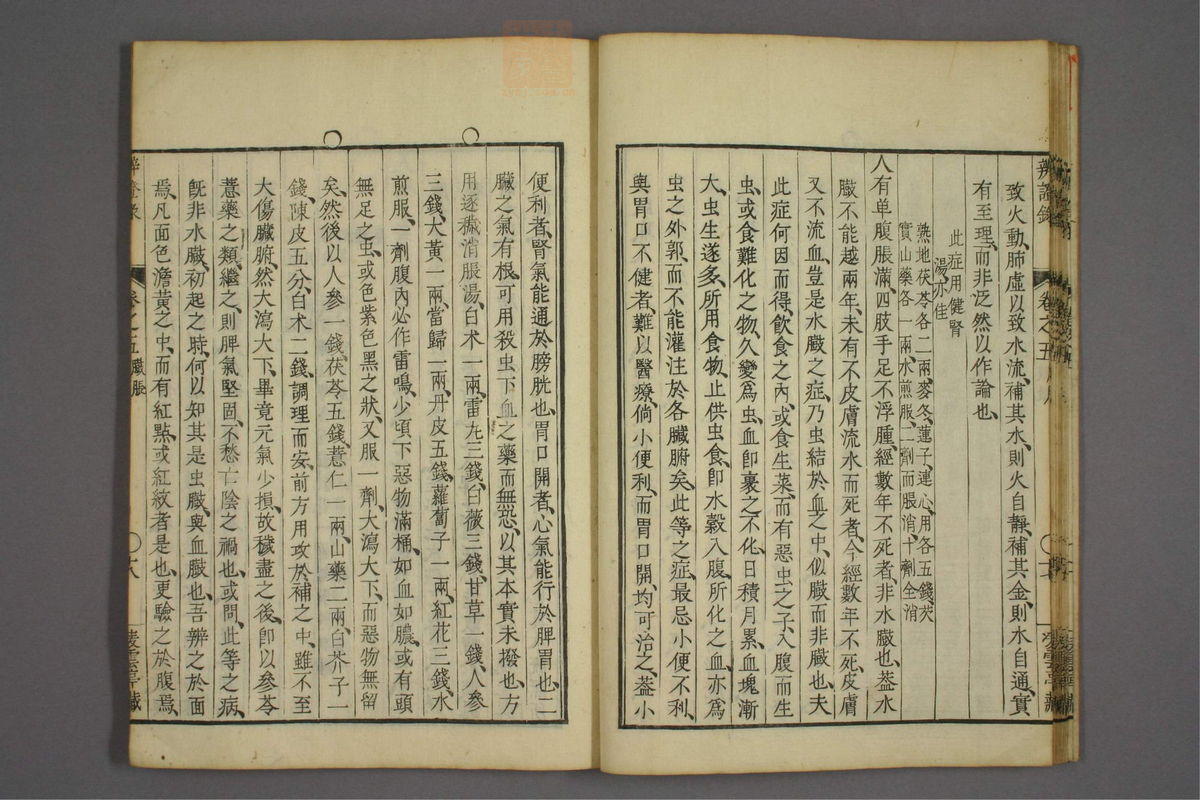 致火動、肺虛以致水流、補其水、則火自靜、補其金、則水自通、實
有至理、而非泛然以作論也、
此症用健腎
湯亦佳
熟地茯苓各二兩麥冬、蓮子、連心、用各五錢、芡
實山藥各一兩、水煎服、二劑而脹消、十劑全消
人有单腹脹滿、四肢手足不浮腫、經數年不死者、非水臌也、葢水
臌不能越兩年、未有不皮膚流水而死者、今經數年不死、皮膚
又不流血、豈是水臌之症、乃虫結於血之中、似臌而非臌也、夫
此症何因而得、飲食之內、或食生菜、而有惡虫之子、入腹而生
虫、或食難化之物、久變爲虫、血卽裹之不化、日積月累、血塊漸
大、虫生遂多、所用食物、止供虫食、卽水穀入腹、所化之血、亦爲
虫之外郭、而不能灌注於各臟腑矣、此等之症、最忌小便不利、
與胃口不健者、難以醫療、倘小便利、而胃口開、均可治之、葢小
辨證錄
卷之五
凌雲亭藏
便利者、腎氣能通於膀胱也、胃口開者、心氣能行於脾胃也、二
臟之氣有根、可用殺虫下血之藥而無恐、以其本實未撥也、方
用逐穢消脹湯、白术一兩、雷丸三錢、白薇三錢、甘草一錢、人參
三錢、大黃一兩、當歸一兩、丹皮五錢、蘿蔔子一兩、紅花三錢、水
煎服、一劑腹內必作雷鳴、少頃下惡物滿桶、如血如膿、或有頭
無足之虫、或色紫色黑之狀、又服一劑、大瀉大下、而惡物無留
矣、然後以人參一錢、茯苓五錢、薏仁一兩、山藥二兩、白芥子一
錢、陳皮五分、白术二錢、調理而安、前方用攻於補之中、雖不至
大傷臟腑、然大瀉大下、畢竟元氣少損、故穢盡之後、卽以參苓
薏藥之類、繼之、則脾氣堅固、不愁亡陰之禍也、或問、此等之病、
旣非水臌、初起之時、何以知其是虫臌與血臌也、吾辨之於面
焉、凡面色澹黃之中、而有紅點、或紅紋者是也、更驗之於腹焉、
卷之五
臌脹
凌雲亭藏